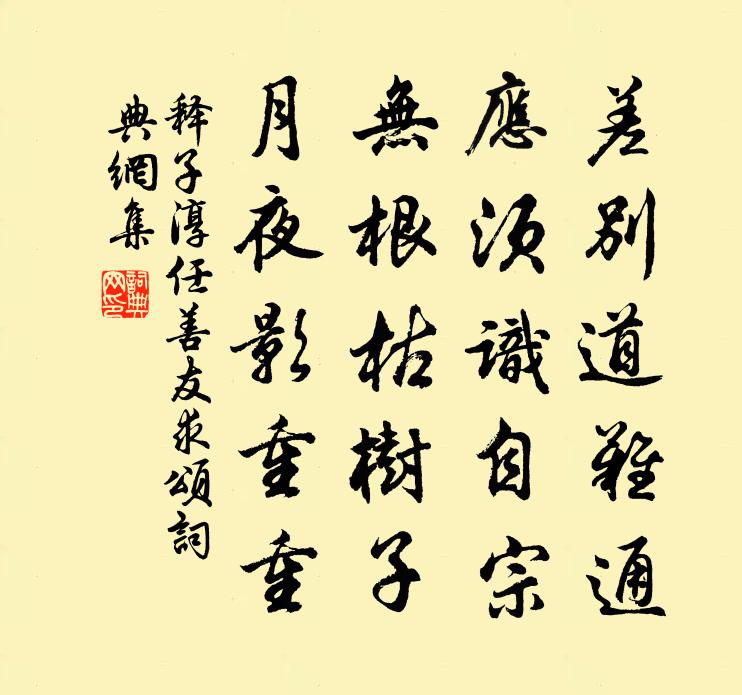 差別道難通
應須識自宗
無根枯樹子
月夜影重重
释子淳任善友求頌詞
典網集
詞典网印